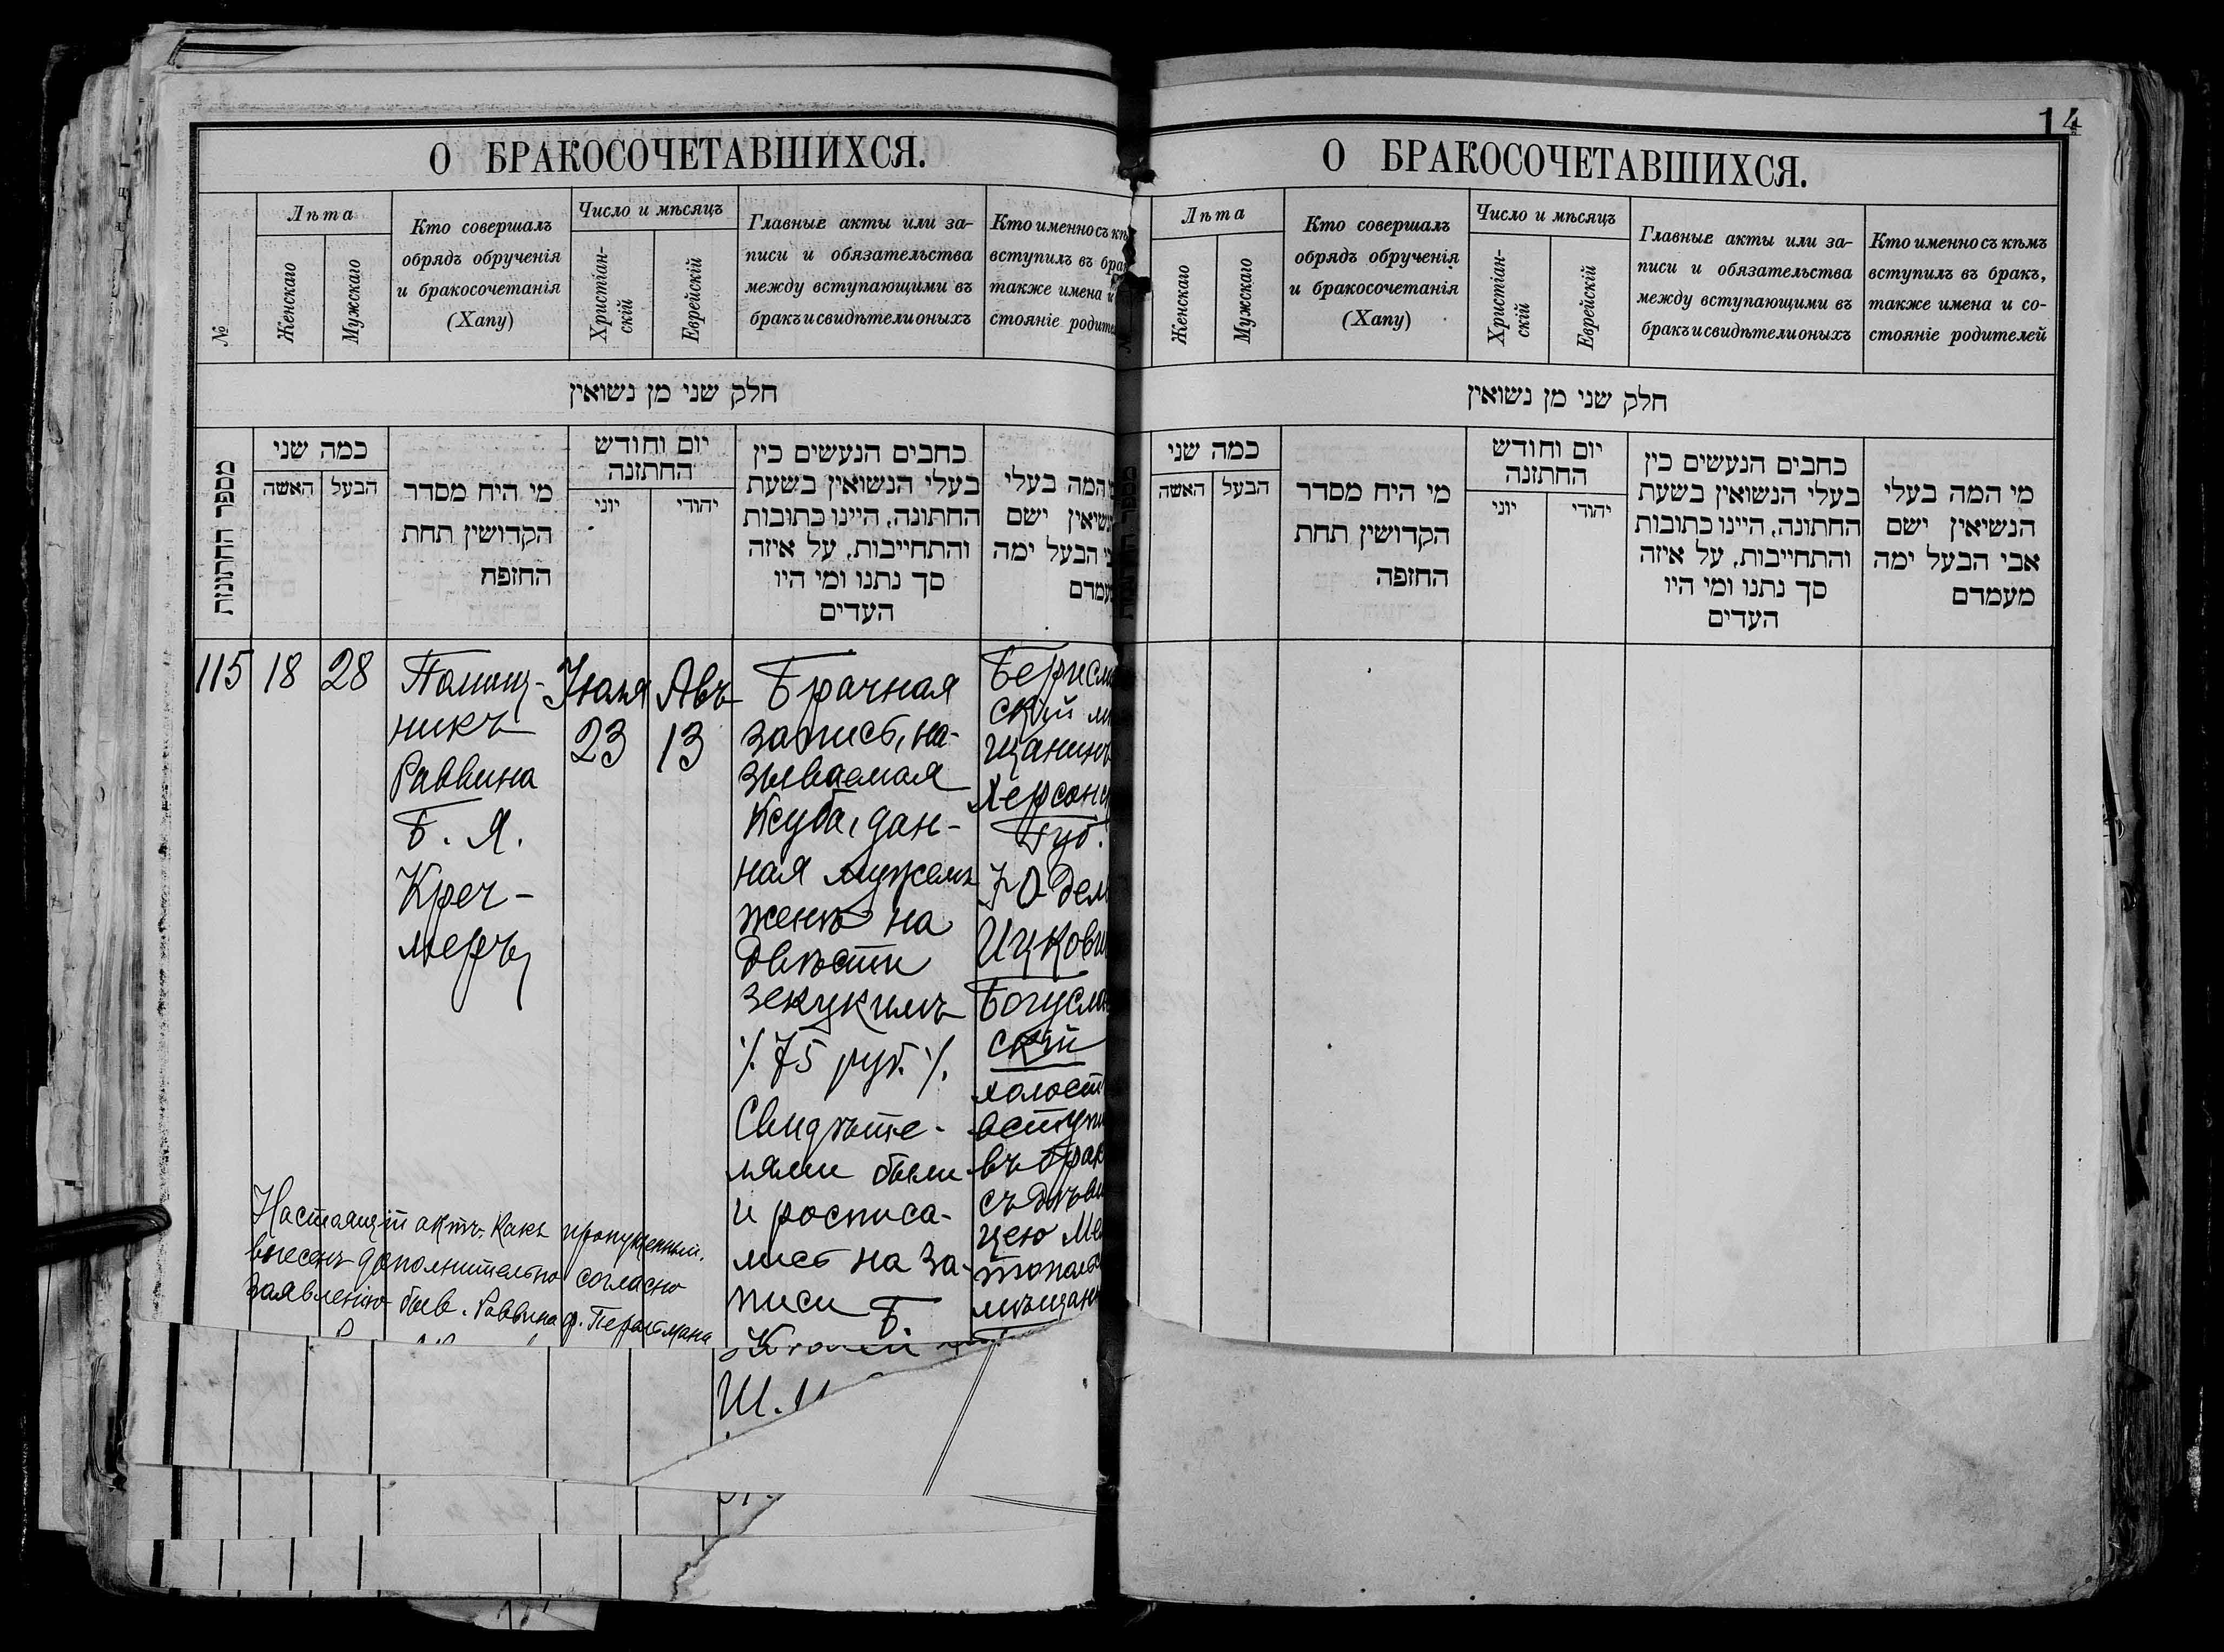 14
О БРАКОСОЧЕТАВШИХСЯ.
№
Лѣта
Женскаго
Мужскаго
Кто совершалъ
обрядъ обрученія
и бракосочетанія
(Хапу)
Число и мѣсяцъ
Христіан-
скій
Еврейскій
Главные акты или за-
писи и обязательства
между вступающими въ
бракъ и свидѣтели оныхъ
Кто именно съ кѣ
вступилъ въ бра
также имена и
стояніе родите
חלק שני מן נשואין
מספר החתונות
כמה שני
האשה
הבעל
מי היח מסדר
הקדושין תחת
החזפח
יום וחודש
החתזנה
יוני
יהודי
כחבים הנעשים כין
בעלי הנשואין בשעת
החתונה, היינו כתובות
והתחייבות, על איזה
סך נתנו ומי היו
העדים
המה בעלי
נשיאין ישם
י הבעל ימה
עמדם
115
18
28
Помощ-
никъ
Раввина
Б. Я.
Креч-
меръ
Іюля
23
Авъ
13
Брачная
запись, на-
зываемая
Ксуба, дан-
ная мужемъ
женѣ на
двѣсти
зекукимъ
/. 75 руб. /.
Свидѣте-
лями были
и росписа-
лись на за-
писи Б.
Ш.
Берисла
скій мѣ
щанинъ
Херсонс
Губ.
Юдель
Ицкови
Богуслав
скій
холост
вступи
въ брак
съ дѣви
цею Ме
топольс
мѣщанк
Настоящій актъ, какъ пропущенный,
внесенъ дополнительно согласно
заявленію быв. Раввина ф. Перельмана
О БРАКОСОЧЕТАВШИХСЯ.
Лѣта
Женскаго
Мужскаго
Кто совершалъ
обрядъ обрученія
и бракосочетанія
(Хапу)
Число и мѣсяцъ
Христіан-
скій
Еврейскій
Главные акты или за-
писи и обязательства
между вступающими въ
бракъ и свидѣтели оныхъ
Кто именно съ кѣмъ
вступилъ въ бракъ,
также имена и со-
стояніе родителей
חלק שני מן נשואין
כמה שני
האשה
הבעל
מי היח מסדר
הקדושין תחת
החזפה
יום וחודש
החתזנה
יוני
יהודי
כחבים הנעשים כין
בעלי הנשואין בשעת
החתונה, היינו כתובות
והתחייבות, על איזה
סך נתנו ומי היו
העדים
מי המה בעלי
הנשיאין ישם
אבי הבעל ימה
מעמדם